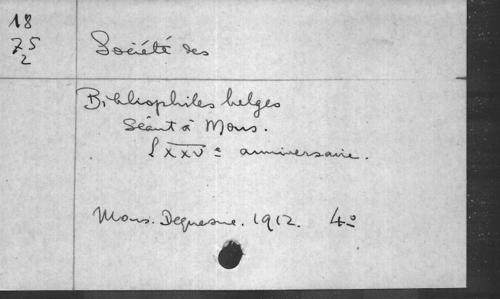 18
75
2
Société des
Bibliophiles belges
séant à Mons.
LXXVe anniversaire.
Mons. Dequesne. 1912. 4o